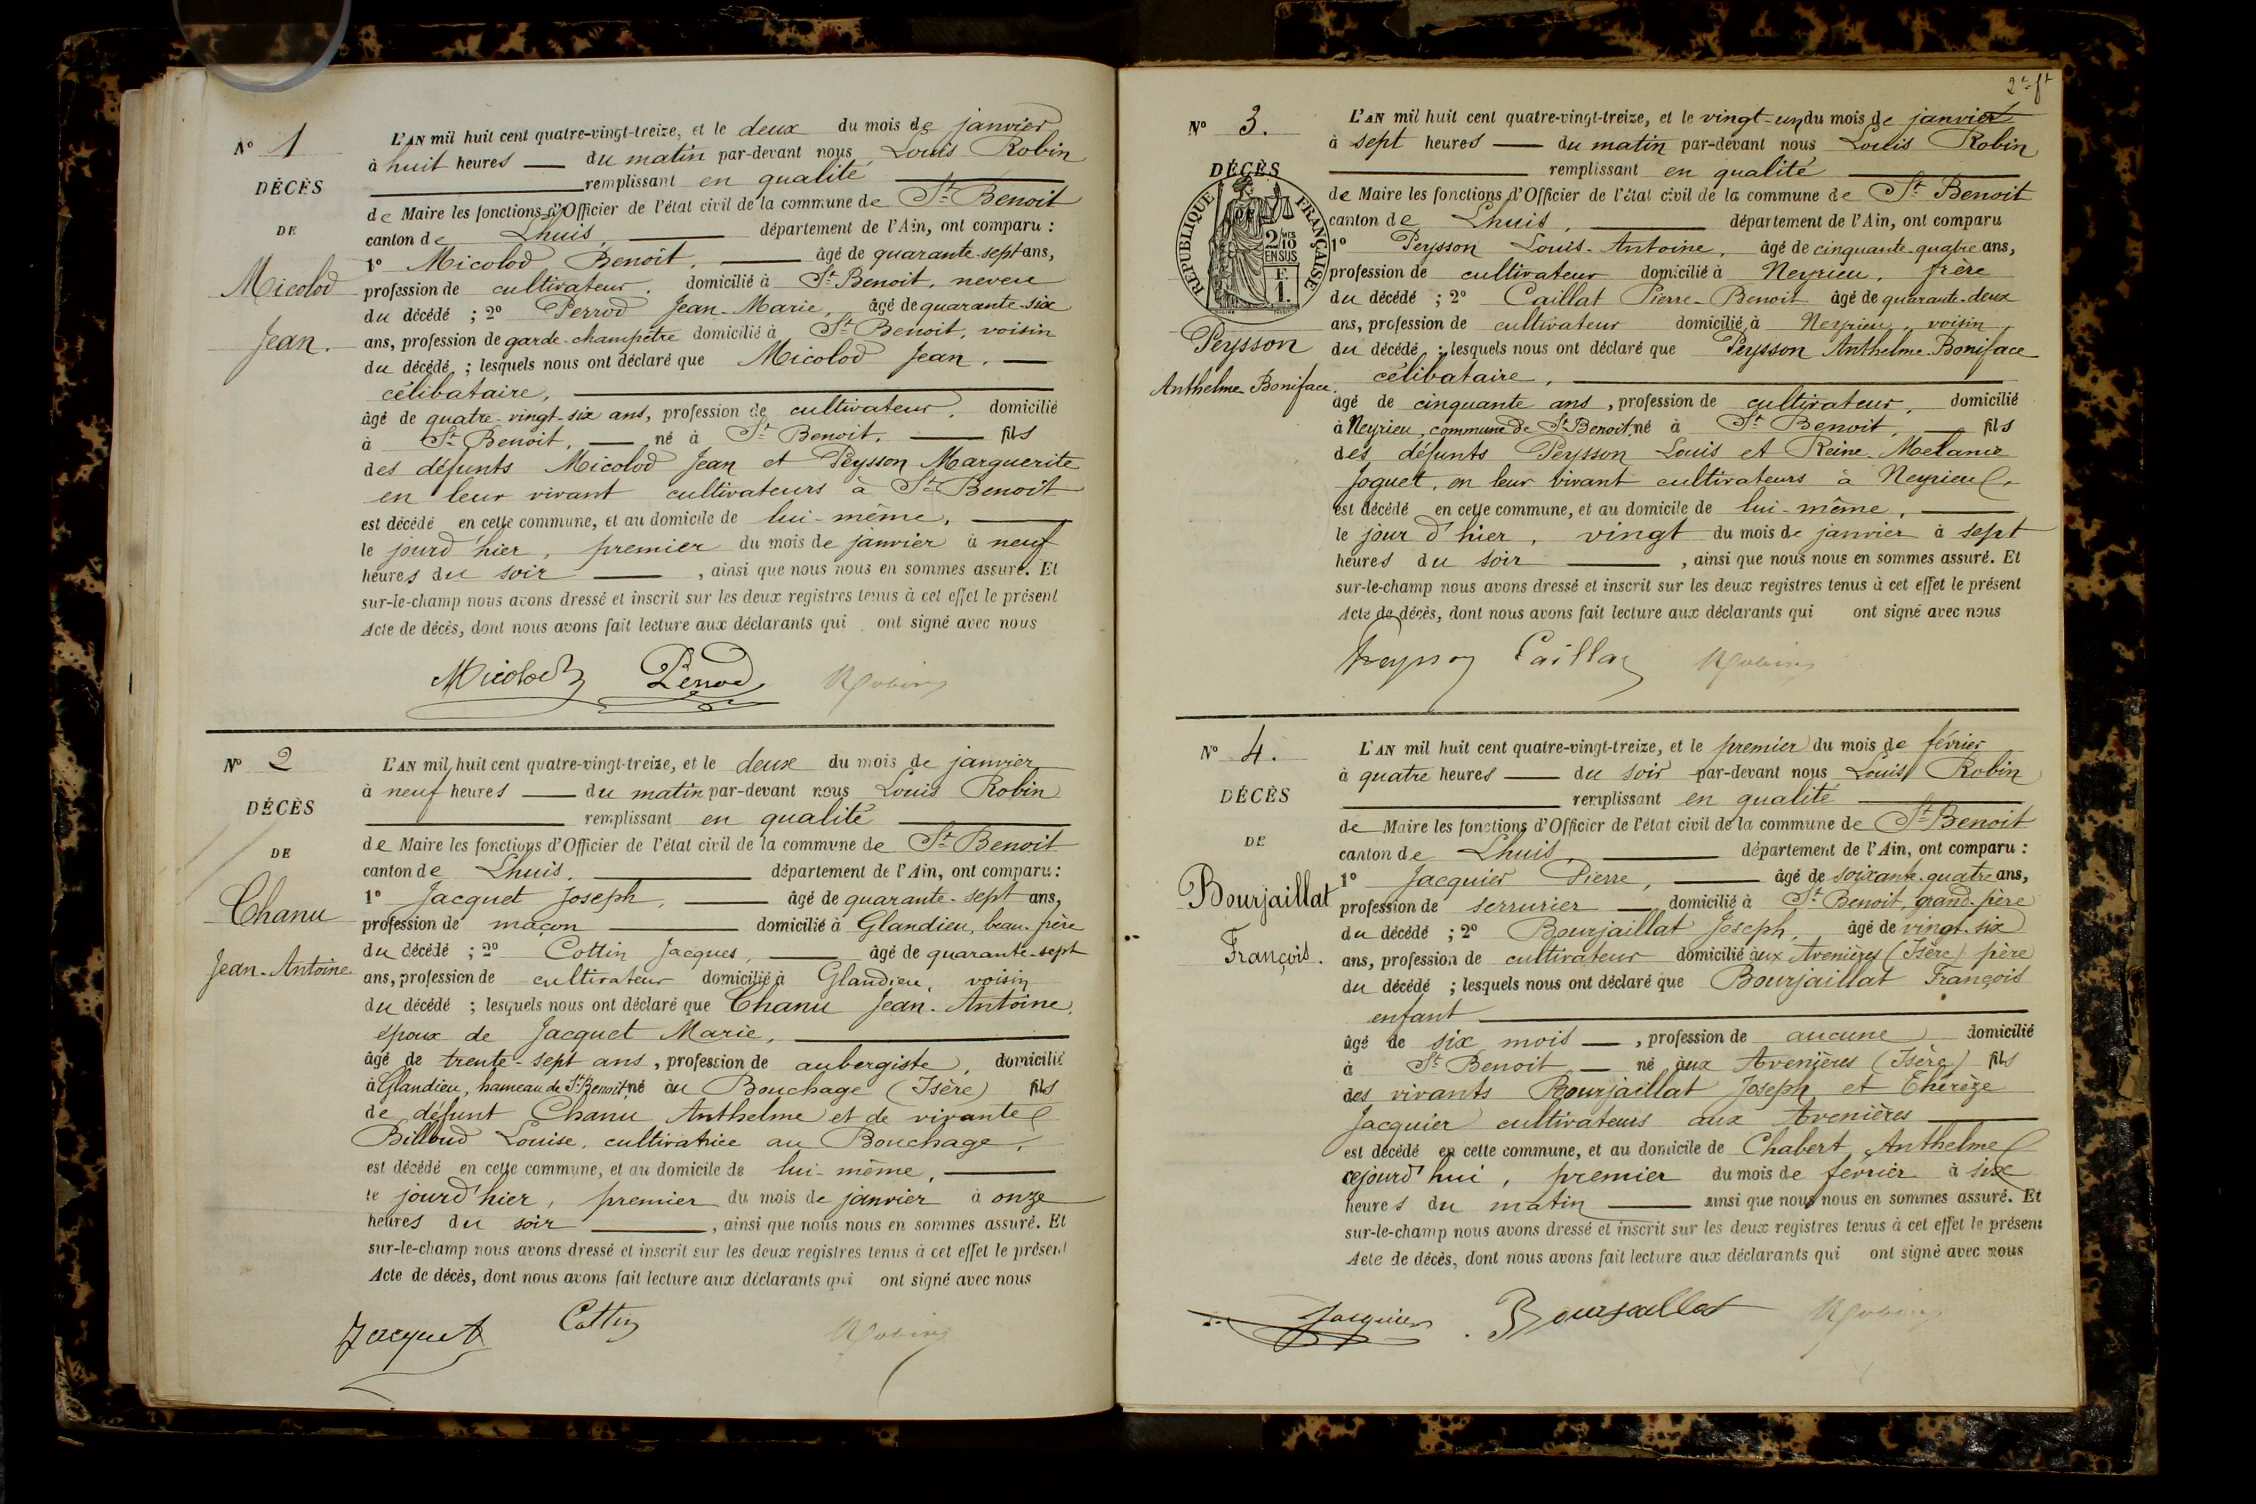 N° 1
DÉCÈS
DE
Micolod
Jean.
L'AN mil huit cent quatre-vingt-treize, et le deux du mois de janvier
à huit heures du matin par-devant nous Louis Robin
remplissant en qualité
de Maire les fonctions d'Officier de l'état civil de la commune de St Benoit
canton de Lhuis, département de l'Ain, ont comparu :
1° Micolod Benoit, âgé de quarante-sept ans,
profession de cultivateur, domicilié à St Benoit, neveu
du décédé ; 2° Perrod Jean-Marie, âgé de quarante-six
ans, profession de garde-champêtre domicilié à St Benoit, voisin
du décédé ; lesquels nous ont déclaré que Micolod Jean,
célibataire,
âgé de quatre-vingt-six ans, profession de cultivateur, domicilié
à St Benoit, né à St Benoit, fils
des défunts Micolod Jean et Peysson Marguerite
en leur vivant cultivateurs à St Benoit
est décédé en cette commune, et au domicile de lui-même,
le jourd'hier, premier du mois de janvier à neuf
heures du soir, ainsi que nous nous en sommes assuré. Et
sur-le-champ nous avons dressé et inscrit sur les deux registres tenus à cet effet le présent
Acte de décès, dont nous avons fait lecture aux déclarants qui ont signé avec nous
Micolod Perrod Robin
N° 2
DÉCÈS
DE
Chanu
Jean-Antoine
L'AN mil huit cent quatre-vingt-treize, et le deux du mois de janvier
à neuf heures du matin par-devant nous Louis Robin
remplissant en qualité
de Maire les fonctions d'Officier de l'état civil de la commune de St Benoit
canton de Lhuis, département de l'Ain, ont comparu :
1° Jacquet Joseph, âgé de quarante-sept ans,
profession de maçon domicilié à Glandieu, beau-père
du décédé ; 2° Cottin Jacques, âgé de quarante-sept
ans, profession de cultivateur domicilié à Glandieu, voisin
du décédé ; lesquels nous ont déclaré que Chanu Jean-Antoine,
époux de Jacquet Marie,
âgé de trente-sept ans, profession de aubergiste, domicilié
à Glandieu, hameau de St Benoit, né au Bouchage (Isère) fils
de défunt Chanu Anthelme et de vivante
Billoud Louise, cultivatrice au Bouchage,
est décédé en cette commune, et au domicile de lui-même,
le jourd'hier, premier du mois de janvier à onze
heures du soir, ainsi que nous nous en sommes assuré. Et
sur-le-champ nous avons dressé et inscrit sur les deux registres tenus à cet effet le présent
Acte de décès, dont nous avons fait lecture aux déclarants qui ont signé avec nous
Jacquet Cottin Robin
2e ft
N° 3.
DÉCÈS
RÉPUBLIQUE FRANÇAISE
2/10 EN SUS
F. 1.
Peysson
Anthelme Boniface.
L'AN mil huit cent quatre-vingt-treize, et le vingt-un du mois de janvier
à sept heures du matin par-devant nous Louis Robin
remplissant en qualité
de Maire les fonctions d'Officier de l'état civil de la commune de St Benoit
canton de Lhuis, département de l'Ain, ont comparu
1° Peysson Louis-Antoine, âgé de cinquante-quatre ans,
profession de cultivateur domicilié à Neyrieu, frère
du décédé ; 2° Caillat Pierre-Benoit âgé de quarante-deux
ans, profession de cultivateur domicilié à Neyrieu, voisin
du décédé ; lesquels nous ont déclaré que Peysson Anthelme-Boniface
célibataire,
âgé de cinquante ans, profession de cultivateur, domicilié
à Neyrieu, commune de St Benoit, né à St Benoit, fils
des défunts Peysson Louis et Reine-Melanie
Joguet, en leur vivant cultivateurs à Neyrieu,
est décédé en cette commune, et au domicile de lui-même,
le jour d'hier, vingt du mois de janvier à sept
heures du soir, ainsi que nous nous en sommes assuré. Et
sur-le-champ nous avons dressé et inscrit sur les deux registres tenus à cet effet le présent
Acte de décès, dont nous avons fait lecture aux déclarants qui ont signé avec nous
Peysson Caillat Robin
N° 4.
DÉCÈS
DE
Bourjaillat
François.
L'AN mil huit cent quatre-vingt-treize, et le premier du mois de février
à quatre heures du soir par-devant nous Louis Robin
remplissant en qualité
de Maire les fonctions d'Officier de l'état civil de la commune de St Benoit
canton de Lhuis, département de l'Ain, ont comparu :
1° Jacquier Pierre, âgé de soixante-quatre ans,
profession de serrurier domicilié à St Benoit, grand-père
du décédé ; 2° Bourjaillat Joseph, âgé de vingt-six
ans, profession de cultivateur domicilié aux Avenières (Isère) père
du décédé ; lesquels nous ont déclaré que Bourjaillat François
enfant
âgé de six mois, profession de aucune domicilié
à St Benoit né aux Avenières (Isère) fils
des vivants Bourjaillat Joseph et Thérèze
Jacquier cultivateurs aux Avenières
est décédé en cette commune, et au domicile de Chabert Anthelme
cejourd'hui, premier du mois de février à six
heures du matin ainsi que nous nous en sommes assuré. Et
sur-le-champ nous avons dressé et inscrit sur les deux registres tenus à cet effet le présent
Acte de décès, dont nous avons fait lecture aux déclarants qui ont signé avec nous
Jacquier Bourjaillat Robin